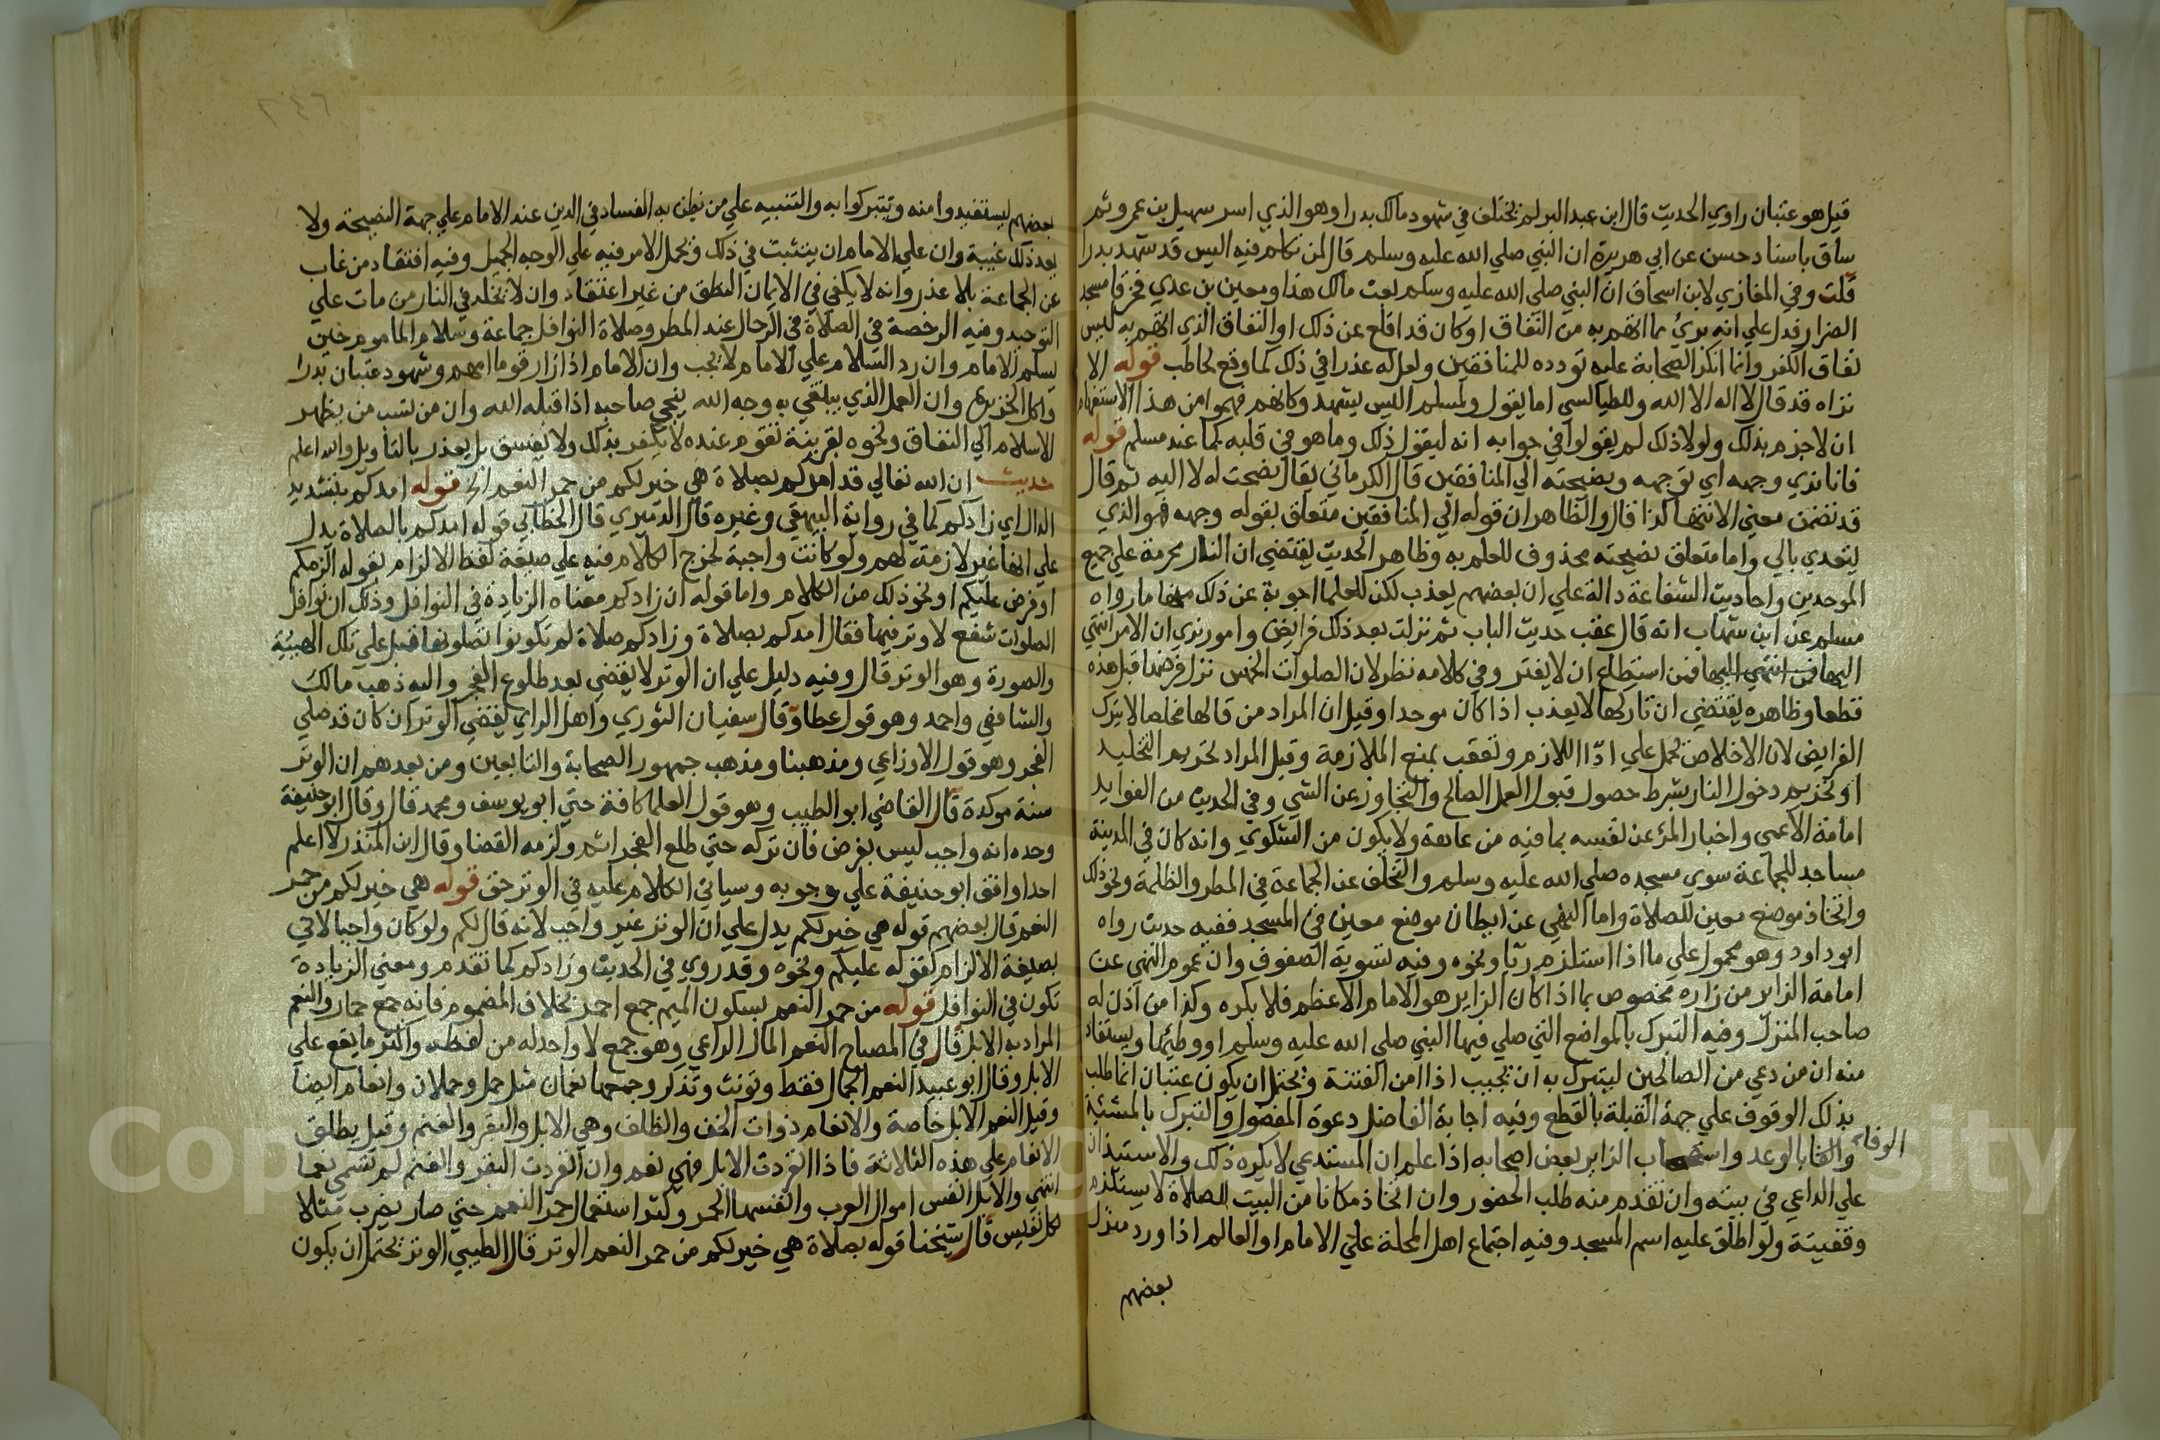 قيل هو عتبان راوي الحديث قال ابن عبد البر لم يختلف في شهود مالك بدرا وهو الذي اسر سهيل بن عمرو ثم
ساق باسناد حسن عن ابي هريرة ان النبي صلي الله عليه وسلم قال لمن تكلم فيه اليس قد شهد بدرا
قلت وفي المغازي لابن اسحاق ان النبي صلي الله عليه وسلم بعث مالك هذا ومعين بن عدي فخرقا مسجد
الضرار فدل علي انه بريء مما اتهم به من النفاق او كان قد اقلع عن ذلك او النفاق الذي اتهم به ليس
نفاق الكفر وانما انكر الصحابة عليه تودده للمنافقين ولعل له عذرا في ذلك كما وقع لحاطب قوله الا
نراه قد قال لا اله الا الله وللطيالسي اما يقول ولمسلم اليس يشهد وكانهم فهموا من هذا الاستفهام
ان لا جزم بذلك ولولا ذلك لم يقولوا في جوابه انه ليقول ذلك وما هو في قلبه كما عند مسلم قوله
فانا نري وجهه اي توجهه ونصيحته الي المنافقين قال الكرماني يقال نصحت له لا اليه ثم قال
قد تضمن معني الانتها كذا قال والظاهر ان قوله الي المنافقين متعلق بقوله وجهه فهو الذي
يتعدي بالي واما متعلق نصيحته محذوف للعلم به وظاهر الحديث يقتضي ان النار محرمة علي جميع
الموحدين واحاديث الشفاعة دالة علي ان بعضهم يعذب لكن للعلما اجوبة عن ذلك منها ما رواه
مسلم عن ابن شهاب انه قال عقب حديث الباب ثم نزلت بعد ذلك فرايض وامور نري ان الامر انتهي
اليها فمن استطاع ان لا يغتر وفي كلامه نظر لان الصلوات الخمس نزل فرضها قبل هذه
قطعا وظاهره يقتضي ان تاركها لا يعذب اذا كان موحدا وقيل ان المراد من قالها مخلصا لا يترك
الفرايض لان الاخلاص يحمل علي ادا اللازم وتعقب بمنع الملازمة وقيل المراد تحريم التخليد
او تحريم دخول النار بشرط حصول قبول العمل الصالح والتجاوز عن الشي وفي الحديث من الفوايد
امامة الاعمي واخبار المرء عن نفسه بما فيه من عاهة ولا يكون من الشكوي وانه كان في المدينة
مساجد للجماعة سوي مسجده صلي الله عليه وسلم والتخلف عن الجماعة في المطر والظلمة ونحو ذلك
واتخاذ موضع معين للصلاة واما النهي عن ايطان موضع معين في المسجد ففيه حديث رواه
ابو داود وهو محمول علي ما اذا استلزم ريا ونحوه وفيه تسوية الصفوف وان عموم النهي عن
امامة الزاير من زاره مخصوص بما اذا كان الزاير هو الامام الاعظم فلا يكره وكذا من اذن له
صاحب المنزل وفيه التبرك بالمواضع التي صلي فيها النبي صلي الله عليه وسلم او وطيها ويستفاد
منه ان من دعي من الصالحين ليتبرك به ان يجيب اذا امن الفتنة ويحتمل ان يكون عتبان انما طلب
بذلك الوقوف علي جهة القبلة بالقطع وفيه اجابة الفاضل دعوة المفضول والتبرك بالمشئية
والوفا بالوعد واستصحاب الزاير بعض اصحابه اذا علم ان المستدعي لا يكره ذلك والاستئذان
علي الداعي في بيته وان تقدم منه طلب الحضور وان اتخاذ مكانا من البيت للصلاة لا يستلزم
وقفيتة ولو اطلق عليه اسم المسجد وفيه اجتماع اهل المحلة علي الامام او العالم اذا ورد منزل
بعضهم
بعضهم ليستفيدوا منه ويتبركوا به والتنبيه علي من يظن به الفساد في الدين عند الامام علي جهة النصيحة ولا
يعد ذلك غيبة وان علي الامام ان يتثبت في ذلك ويحمل الامر فيه علي الوجه الجميل وفيه افتقاد من غاب
عن الجماعة بلا عذر وانه لا يكفي في الايمان النطق من غير اعتقاد وان لا يخلد في النار من مات علي
التوحيد وفيه الرخصة في الصلاة في الرحال عند المطر وصلاة النوافل جماعة وسلام الماموم حين
يسلم الامام وان رد السلام علي الامام لا يجب وان الامام اذا زار قوما امهم وشهود عتبان بدرا
واكل الخزيرة وان العمل الذي يبتغي به وجه الله ينجي صاحبه اذا قبله الله وان من نسب من يظهر
الاسلام الي النفاق ونحوه بقرينة تقوم عنده لا يكفر بذلك ولا يفسق بل يعذر بالتاويل والله اعلم
حديث ان الله تعالي قد امدكم بصلاة هي خير لكم من حمر النعم الخ قوله امدكم بتشديد
الدال اي زادكم كما في رواية البيهقي وغيره قال الدميري قال الخطابي قوله امدكم بالصلاة يدل
علي انها غير لازمة لهم ولو كانت واجبة لخرج الكلام فيه علي صيغة لفظ الالزام بقوله الزمكم
او فرض عليكم او نحو ذلك من الكلام واما قوله ان زادكم معناه الزيادة في النوافل وذلك ان نوافل
الصلوات شفع لا وتر فيها فقال امدكم بصلاة وزادكم صلاة لم تكونوا تصلونها قبل علي تلك الهيئة
والصورة وهو الوتر قال وفيه دليل علي ان الوتر لا يقضي بعد طلوع الفجر واليه ذهب مالك
والشافعي واحمد وهو قول عطا وقال سفيان الثوري واهل الراي يقضي الوتر ان كان قد صلي
الفجر وهو قول الاوزاعي ومذهبنا ومذهب جمهور الصحابة والتابعين ومن بعدهم ان الوتر
سنة موكدة قال القاضي ابو الطيب وهو قول العلما كافة حتي ابو يوسف ومحمد قال وقال ابو حنيفة
وحده انه واجب ليس بفرض فان تركه حتي طلع الفجر اثم ولزمه القضا وقال ابن المنذر لا اعلم
احدا وافق ابو حنيفة علي وجوبه وسياتي الكلام عليه في الوتر حق قوله هي خير لكم من حمر
النعم قال بعضهم قوله هي خير لكم يدل علي ان الوتر غير واجب لانه قال لكم ولو كان واجبا لاتي
بصيغة الالزام كقوله عليكم ونحوه وقد روي في الحديث وزادكم كما تقدم ومعني الزيادة
تكون في النوافل قوله من حمر النعم بسكون الميم جمع احمر بخلاف المضموم فانه جمع حمار والنعم
المراد به الابل قال في المصباح النعم المال الراعي وهو جمع لا واحد له من لفظه واكثر ما يقع علي
الابل وقال ابو عبيد النعم الجمال فقط وتونث وتذكر وجمعها نعمان مثل حمل وحملان وانعام ايضا
وقيل النعم الابل خاصة والانعام ذوات الخف والظلف وهي الابل والبقر والغنم وقيل يطلق
الانعام علي هذه الثلاثة فاذا انفردت الابل فهي نعم وان انفردت البقر والغنم لم تسمي نعما
انتهي والابل انفس اموال العرب وانفسها الحمر وكثر استعمال حمر النعم حتي صار يضرب مثلا
لكل نفيس قال شيخنا قوله بصلاة هي خير لكم من حمر النعم الوتر قال الطيبي الوتر يحتمل ان يكون